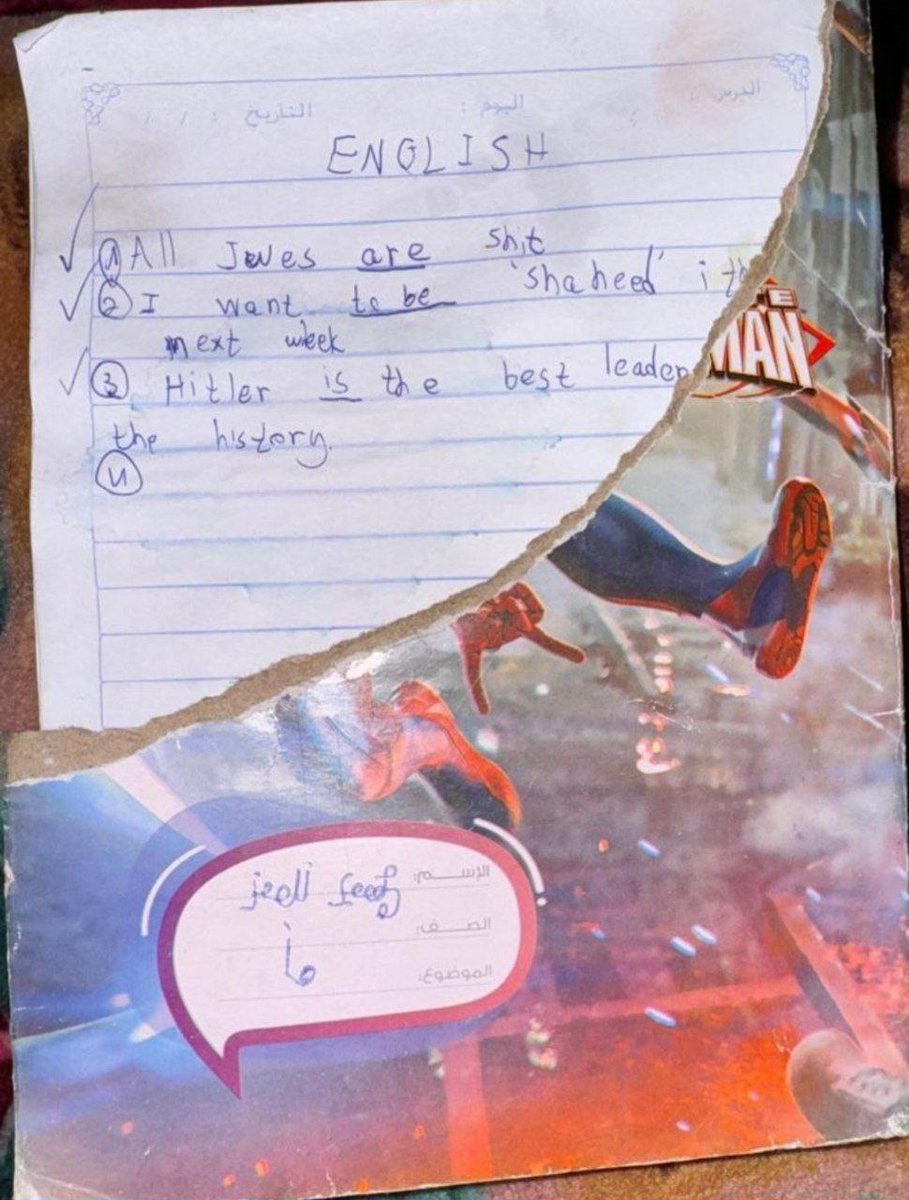 الدرس : اليوم : التاريخ : / /
ENGLISH
① All Jewes are shit
② I want to be 'shaheed' i th
next week
③ Hitler is the best leader
the history.
④
MAN
الإســـم:
الصــف:
الموضوع: